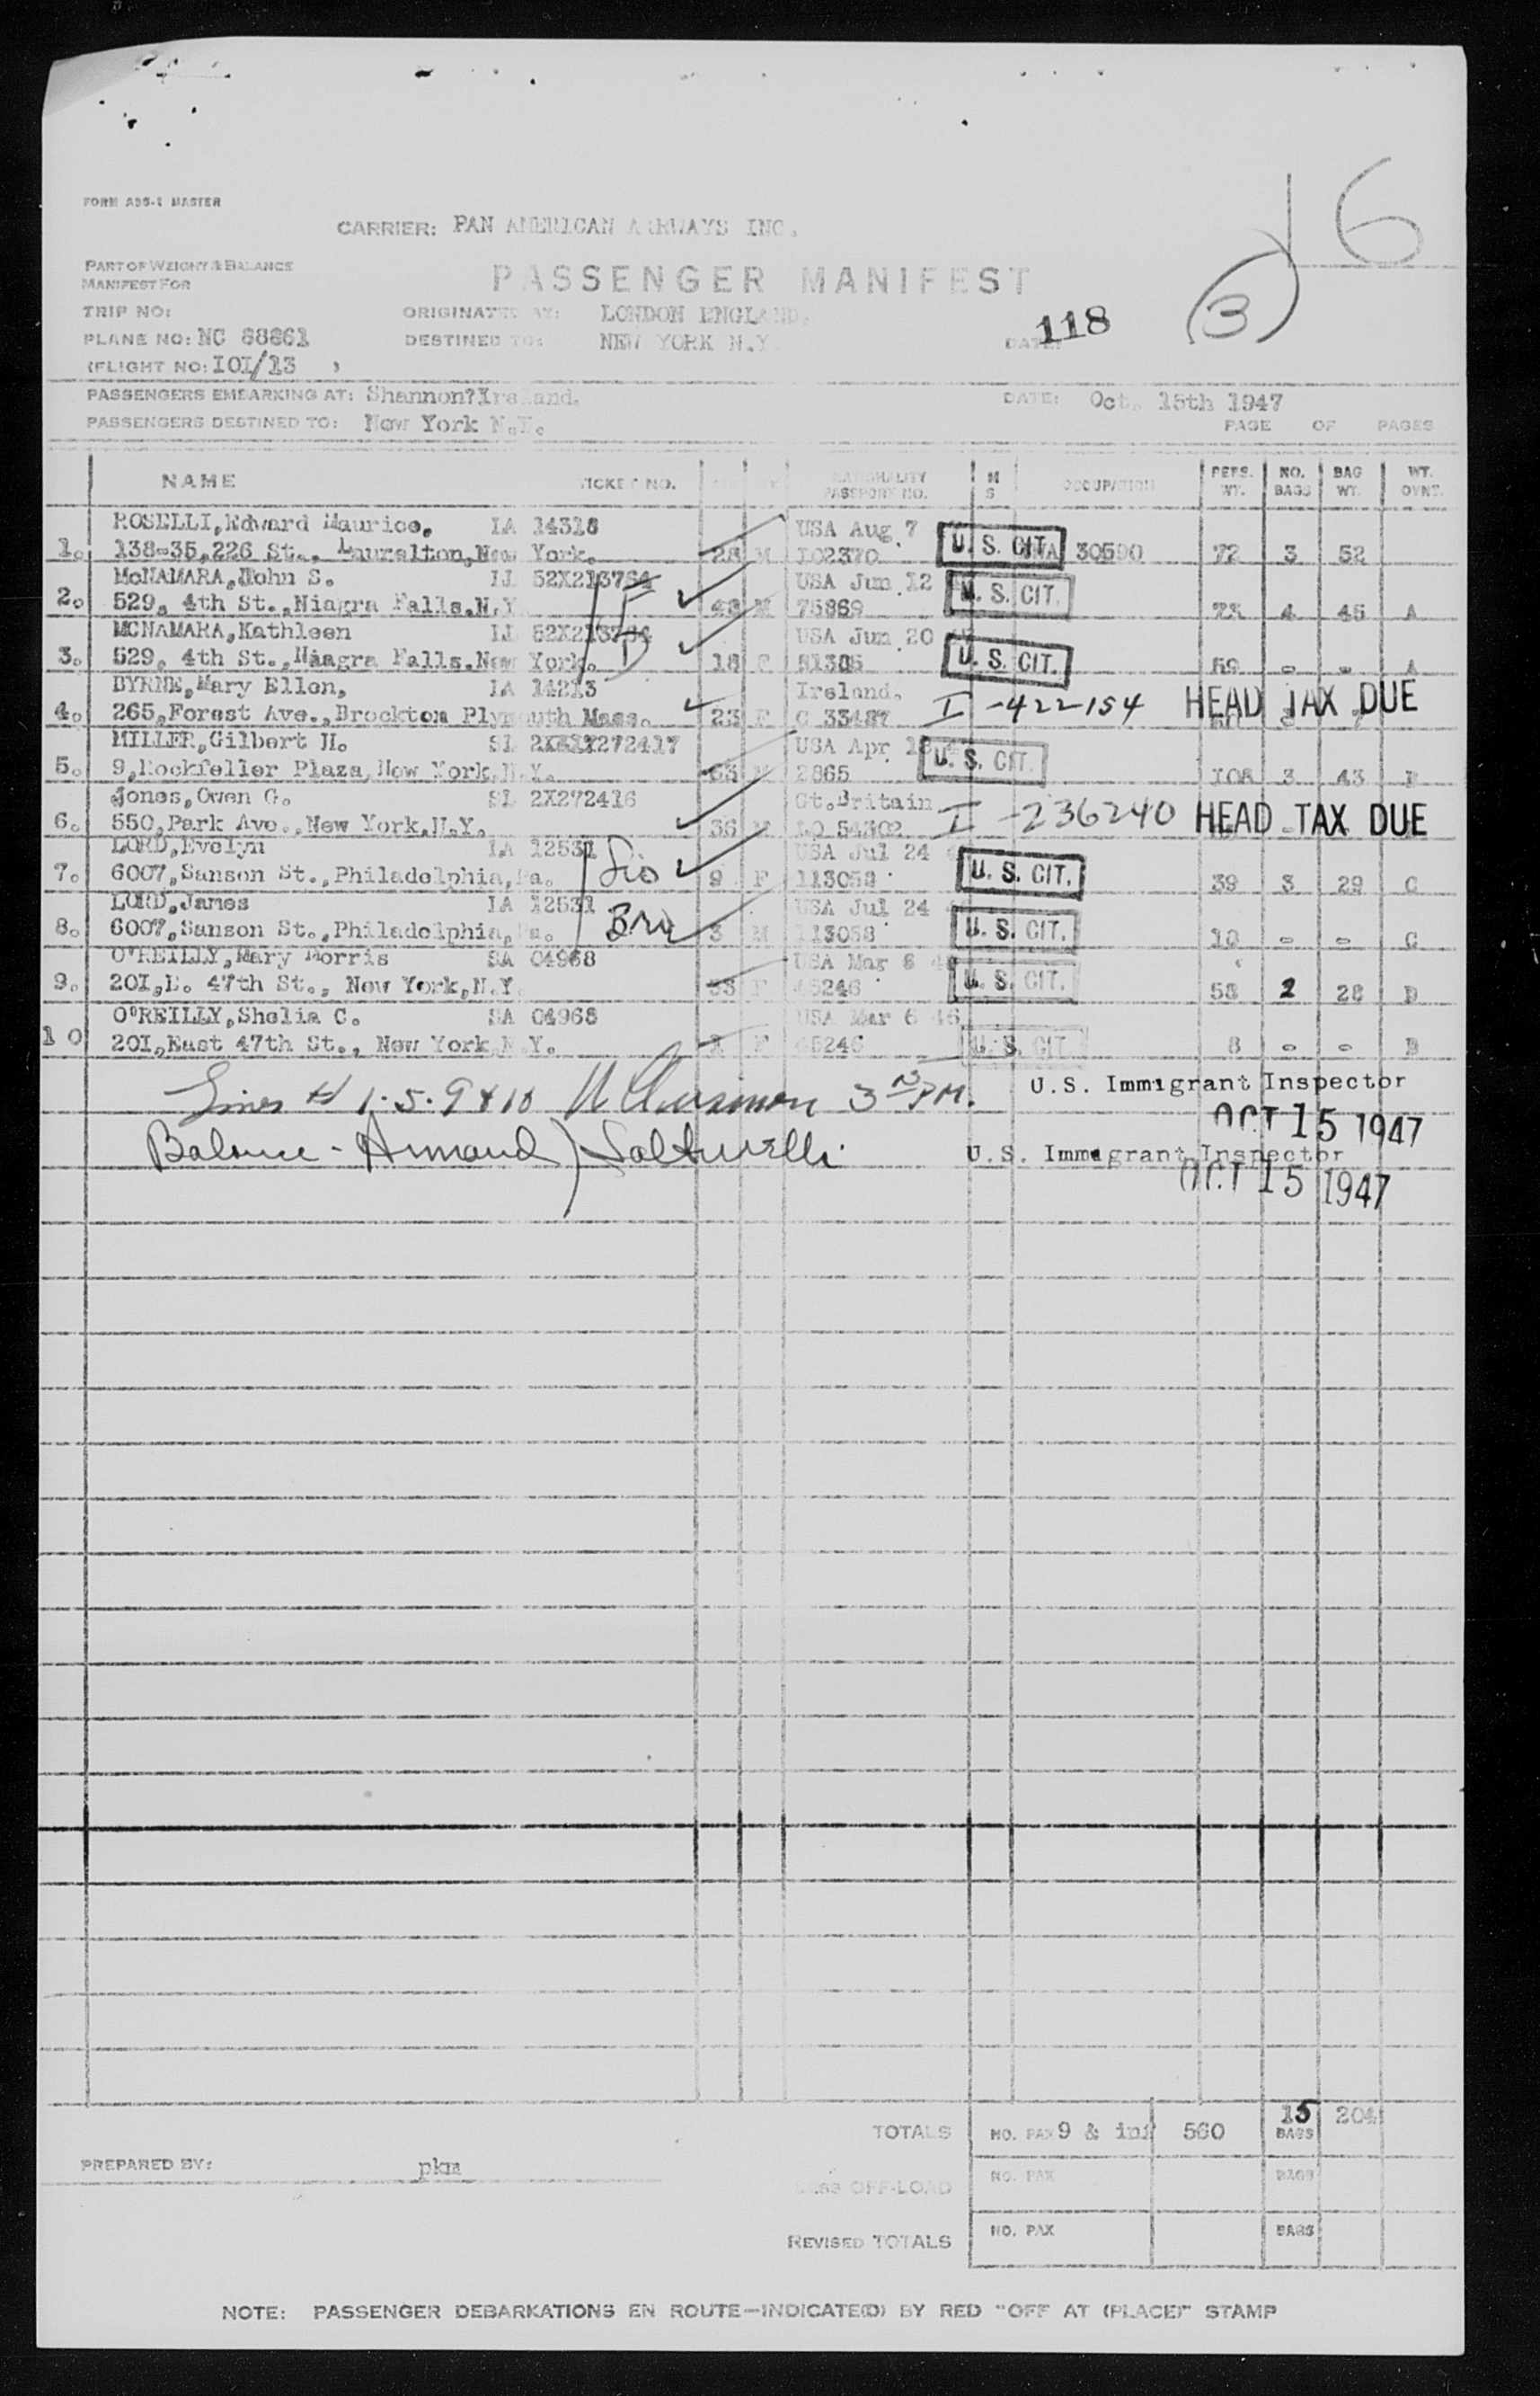 FORM ADS-1 MASTER
CARRIER: PAN AMERICAN AIRWAYS INC.
PART OF WEIGHT & BALANCE
MANIFEST FOR
PASSENGER MANIFEST
16
(3)
TRIP NO:
ORIGINATED AT: LONDON ENGLAND.
118
PLANE NO: NC 88861
DESTINED TO: NEW YORK N.Y.
DATE:
(FLIGHT NO: IOI/13 )
PASSENGERS EMBARKING AT: Shannon?Ireland.
DATE: Oct. 15th 1947
PASSENGERS DESTINED TO: New York N.Y.
PAGE OF PAGES
NAME TICKET NO. NATIONALITY PASSPORT NO. M S OCCUPATION PERS. WT. NO. BAGS BAG WT. WT. OVNT.
ROSELLI,Edward Maurice. IA 14318 USA Aug 7
1. 138-35,226 St., Laurelton,New York. 28 M IO2370 U. S. CIT. 30590 72 3 52
McNAMARA,John S. IJ 52X213764 F USA Jun 12
2. 529, 4th St.,Niagra Falls.N.Y. 48 M 75869 U. S. CIT. 4 45 A
MCNAMARA,Kathleen IJ 52X213764 D USA Jun 20
3. 529, 4th St.,Niagra Falls.New York. 18 F 81385 U. S. CIT. 59 - - A
BYRNE,Mary Ellen, IA 14213 Ireland.
4. 265,Forest Ave.,Brockton Plymouth Mass. 23 F C 33487 I -422154 HEAD TAX DUE
MILLER,Gilbert H. SL 272417 USA Apr
5. 9,Rockfeller Plaza,New York.N.Y. 63 M 2865 U. S. CIT. 108 3 43
Jones,Owen G. SL 2X272416 Gt.Britain
6. 550,Park Ave.,New York.N.Y. 36 M LO 54302 I -236240 HEAD TAX DUE
LORD,Evelyn IA 12531 Sis USA Jul 24
7. 6007,Sanson St.,Philadelphia,Pa. 9 F 113058 U. S. CIT. 39 3 29 C
LORD,James IA 12531 Bro USA Jul 24
8. 6007,Sanson St.,Philadelphia,Pa. 3 M 113058 U. S. CIT. - - C
O'REILLY,Mary Morris SA 04968 USA Mar 6 46
9. 201,E. 47th St., New York,N.Y. 33 F 45246 U. S. CIT. 58 2 28 D
O'REILLY,Shelia C. SA 04968 USA Mar 6 46
10 201,East 47th St., New York N.Y. F 45246 U. S. CIT. 8 - - D
Lines # 1.5.9 & 10 PM. U.S. Immigrant Inspector
OCT 15 1947
Balance - Armand U.S. Immigrant Inspector
OCT 15 1947
TOTALS NO. PAX 9 & inf 560 15 BAGS 204
PREPARED BY: pkm
LESS OFF-LOAD NO. PAX BAGS
REVISED TOTALS NO. PAX BAGS
NOTE: PASSENGER DEBARKATIONS EN ROUTE—INDICATE(D) BY RED "OFF AT (PLACE)" STAMP